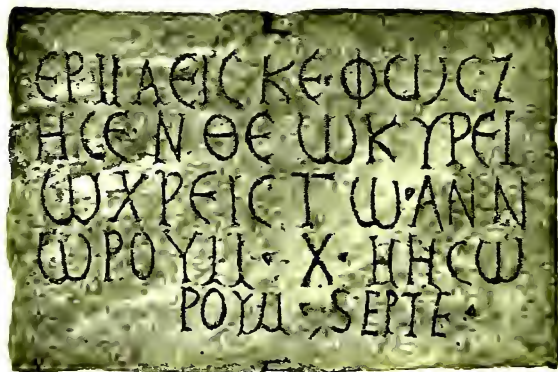 ΕΡΜΑΕΙϹ ΚΕ·ΦΩϹΖ
ΗϹΕ·Ν ΘΕ ΩΚΥΡΕΙ
ΩΧΡΕΙϹΤ Ω·ΑΝΝ
ΩΡΟΥΜ· Χ· ΜΗϹΩ
ΡΟΥΜ · SEPTE·